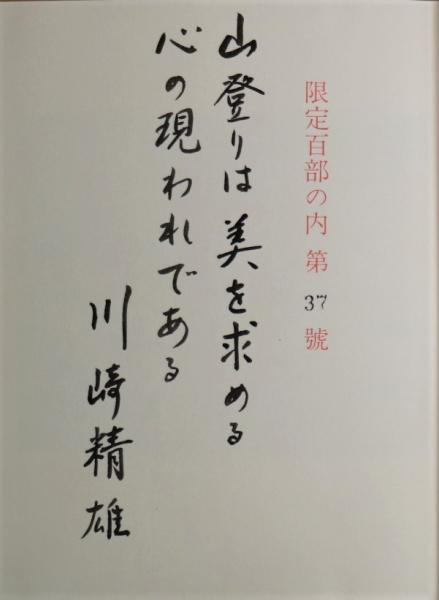 限定百部の内 第 37 號
山登りは美を求める
心の現われである
川崎精雄